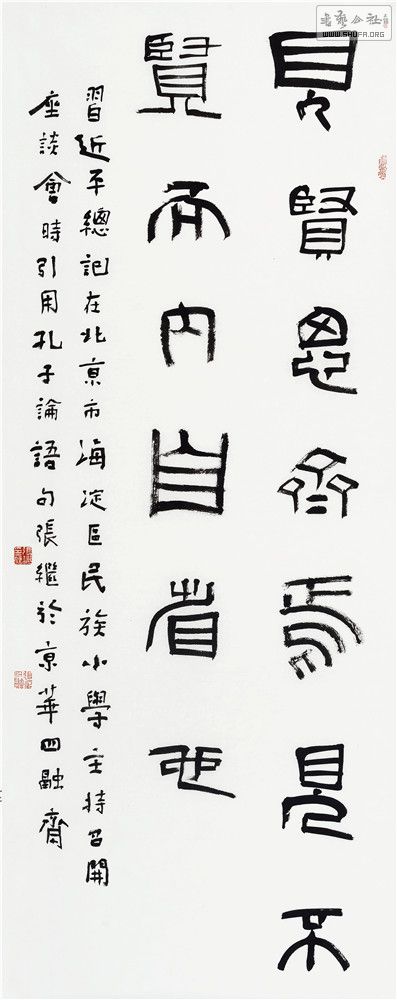 書藝公社
WWW.SHUFA.ORG
見賢思齊焉見不
賢而內自省也
習近平總記在北京市海淀區民族小學主持召開
座談會時引用孔子論語句張繼於京華四融齋